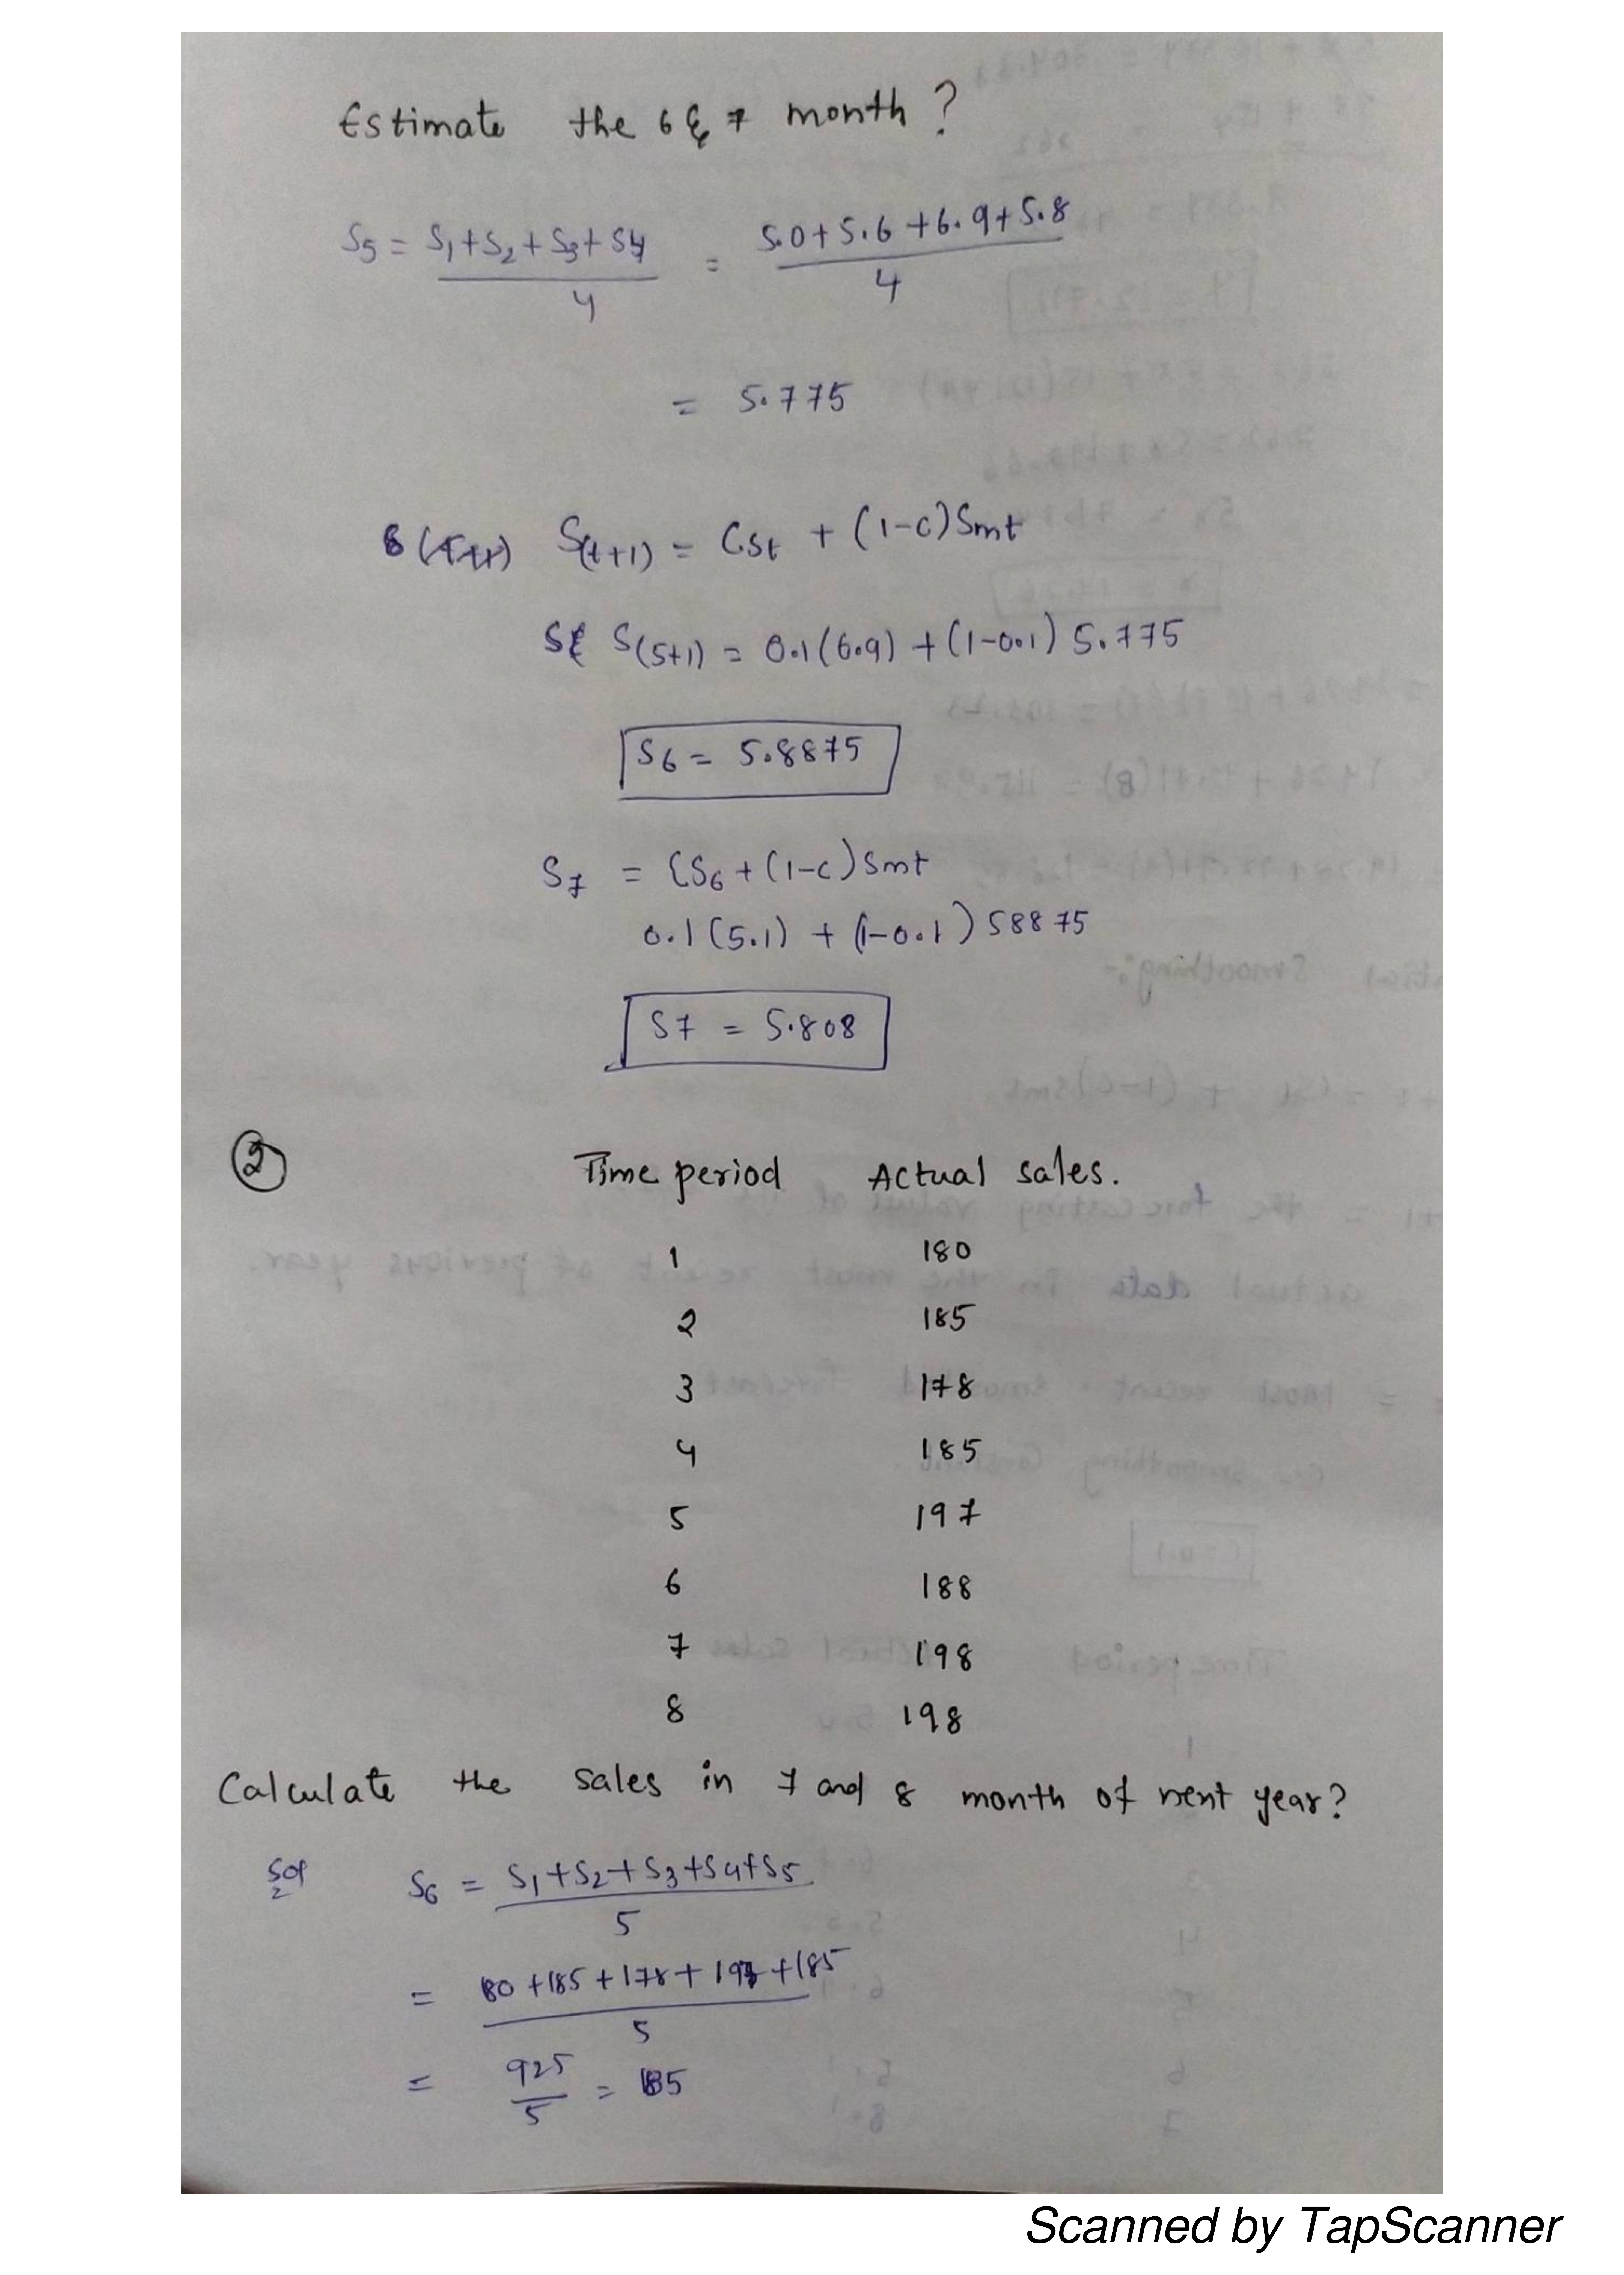 Estimate the 6 & 7 month?
S5 = S1+S2+S3+S4 / 4 = 5.0+5.6+6.9+5.8 / 4
= 5.775
S(t+1) = CSt + (1-C)Smt
S(5+1) = 0.1(6.9) + (1-0.1) 5.775
S6 = 5.8875
S7 = CS6 + (1-C)Smt
0.1(5.1) + (1-0.1) 58875
S7 = 5.808
2 Time period Actual sales.
1 180
2 185
3 178
4 185
5 197
6 188
7 198
8 198
Calculate the sales in 7 and 8 month of next year?
Sol S6 = S1+S2+S3+S4+S5 / 5
= 180+185+178+197+185 / 5
= 925 / 5 = 185
Scanned by TapScanner